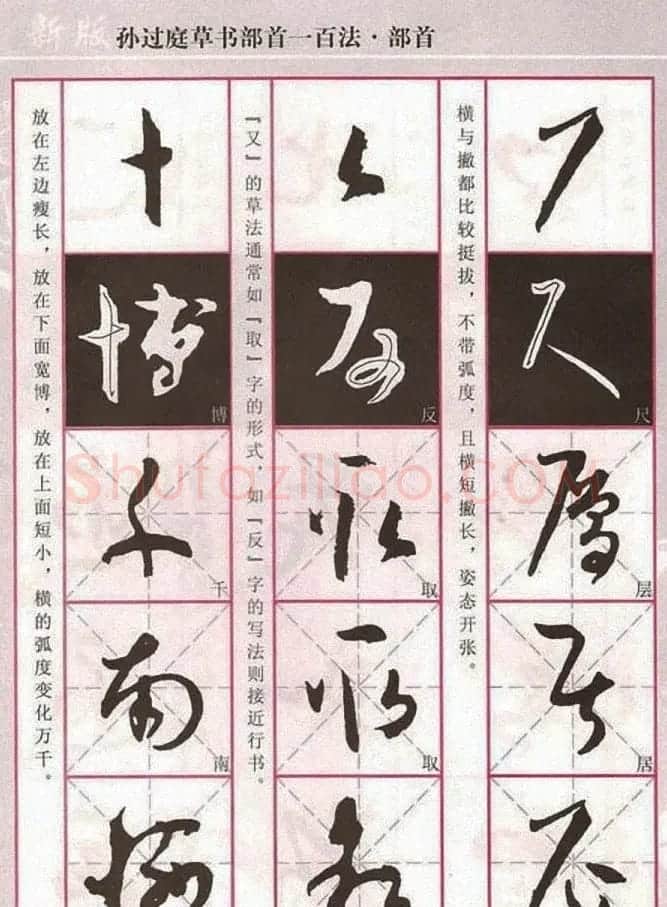 新版 孙过庭草书部首一百法·部首
横与撇都比较挺拔，不带弧度，且横短撇长，姿态开张。
尺
层
居
『又』的草法通常如『取』字的形式，如『反』字的写法则接近行书。
反
取
取
放在左边瘦长，放在下面宽博，放在上面短小，横的弧度变化万千。
十
博
千
南
Shufaziliao.COM